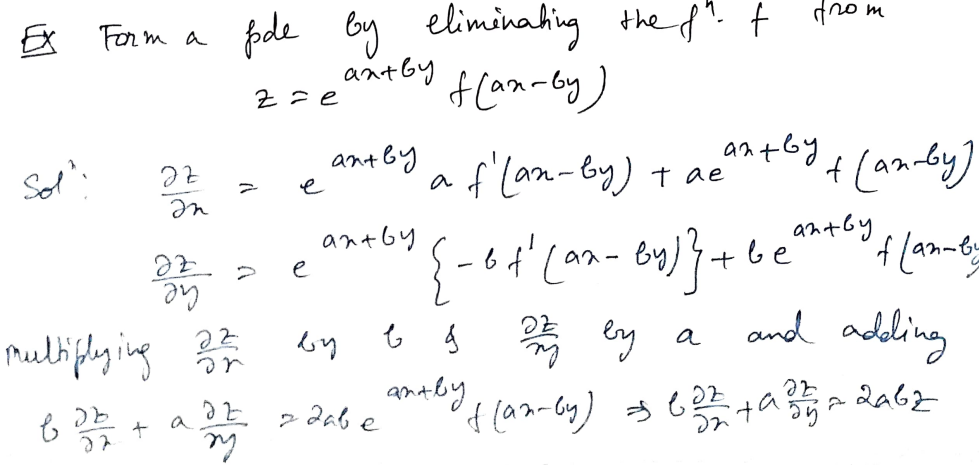 Ex Form a pde by eliminating the fⁿ. f from
z = e^{ax+by} f(ax-by)
Solⁿ: ∂z/∂x = e^{ax+by} a f'(ax-by) + ae^{ax+by} f(ax-by)
∂z/∂y = e^{ax+by} {-bf'(ax-by)} + be^{ax+by} f(ax-by
multiplying ∂z/∂x by b & ∂z/∂y by a and adding
b ∂z/∂x + a ∂z/∂y = 2ab e^{ax+by} f(ax-by) ⇒ b ∂z/∂x + a ∂z/∂y = 2abz